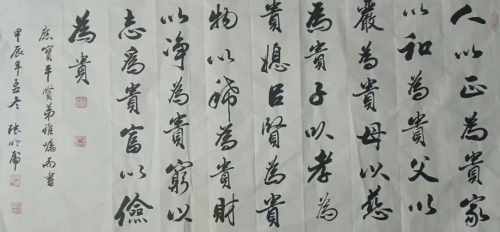 人以正為貴家
以和為貴父以
嚴為貴母以慈
為貴子以孝為
貴媳以賢為貴
物以稀為貴財
以净為貴窮以
志為貴富以儉
為貴
應寶平賢弟雅嘱而書
甲辰年孟冬張